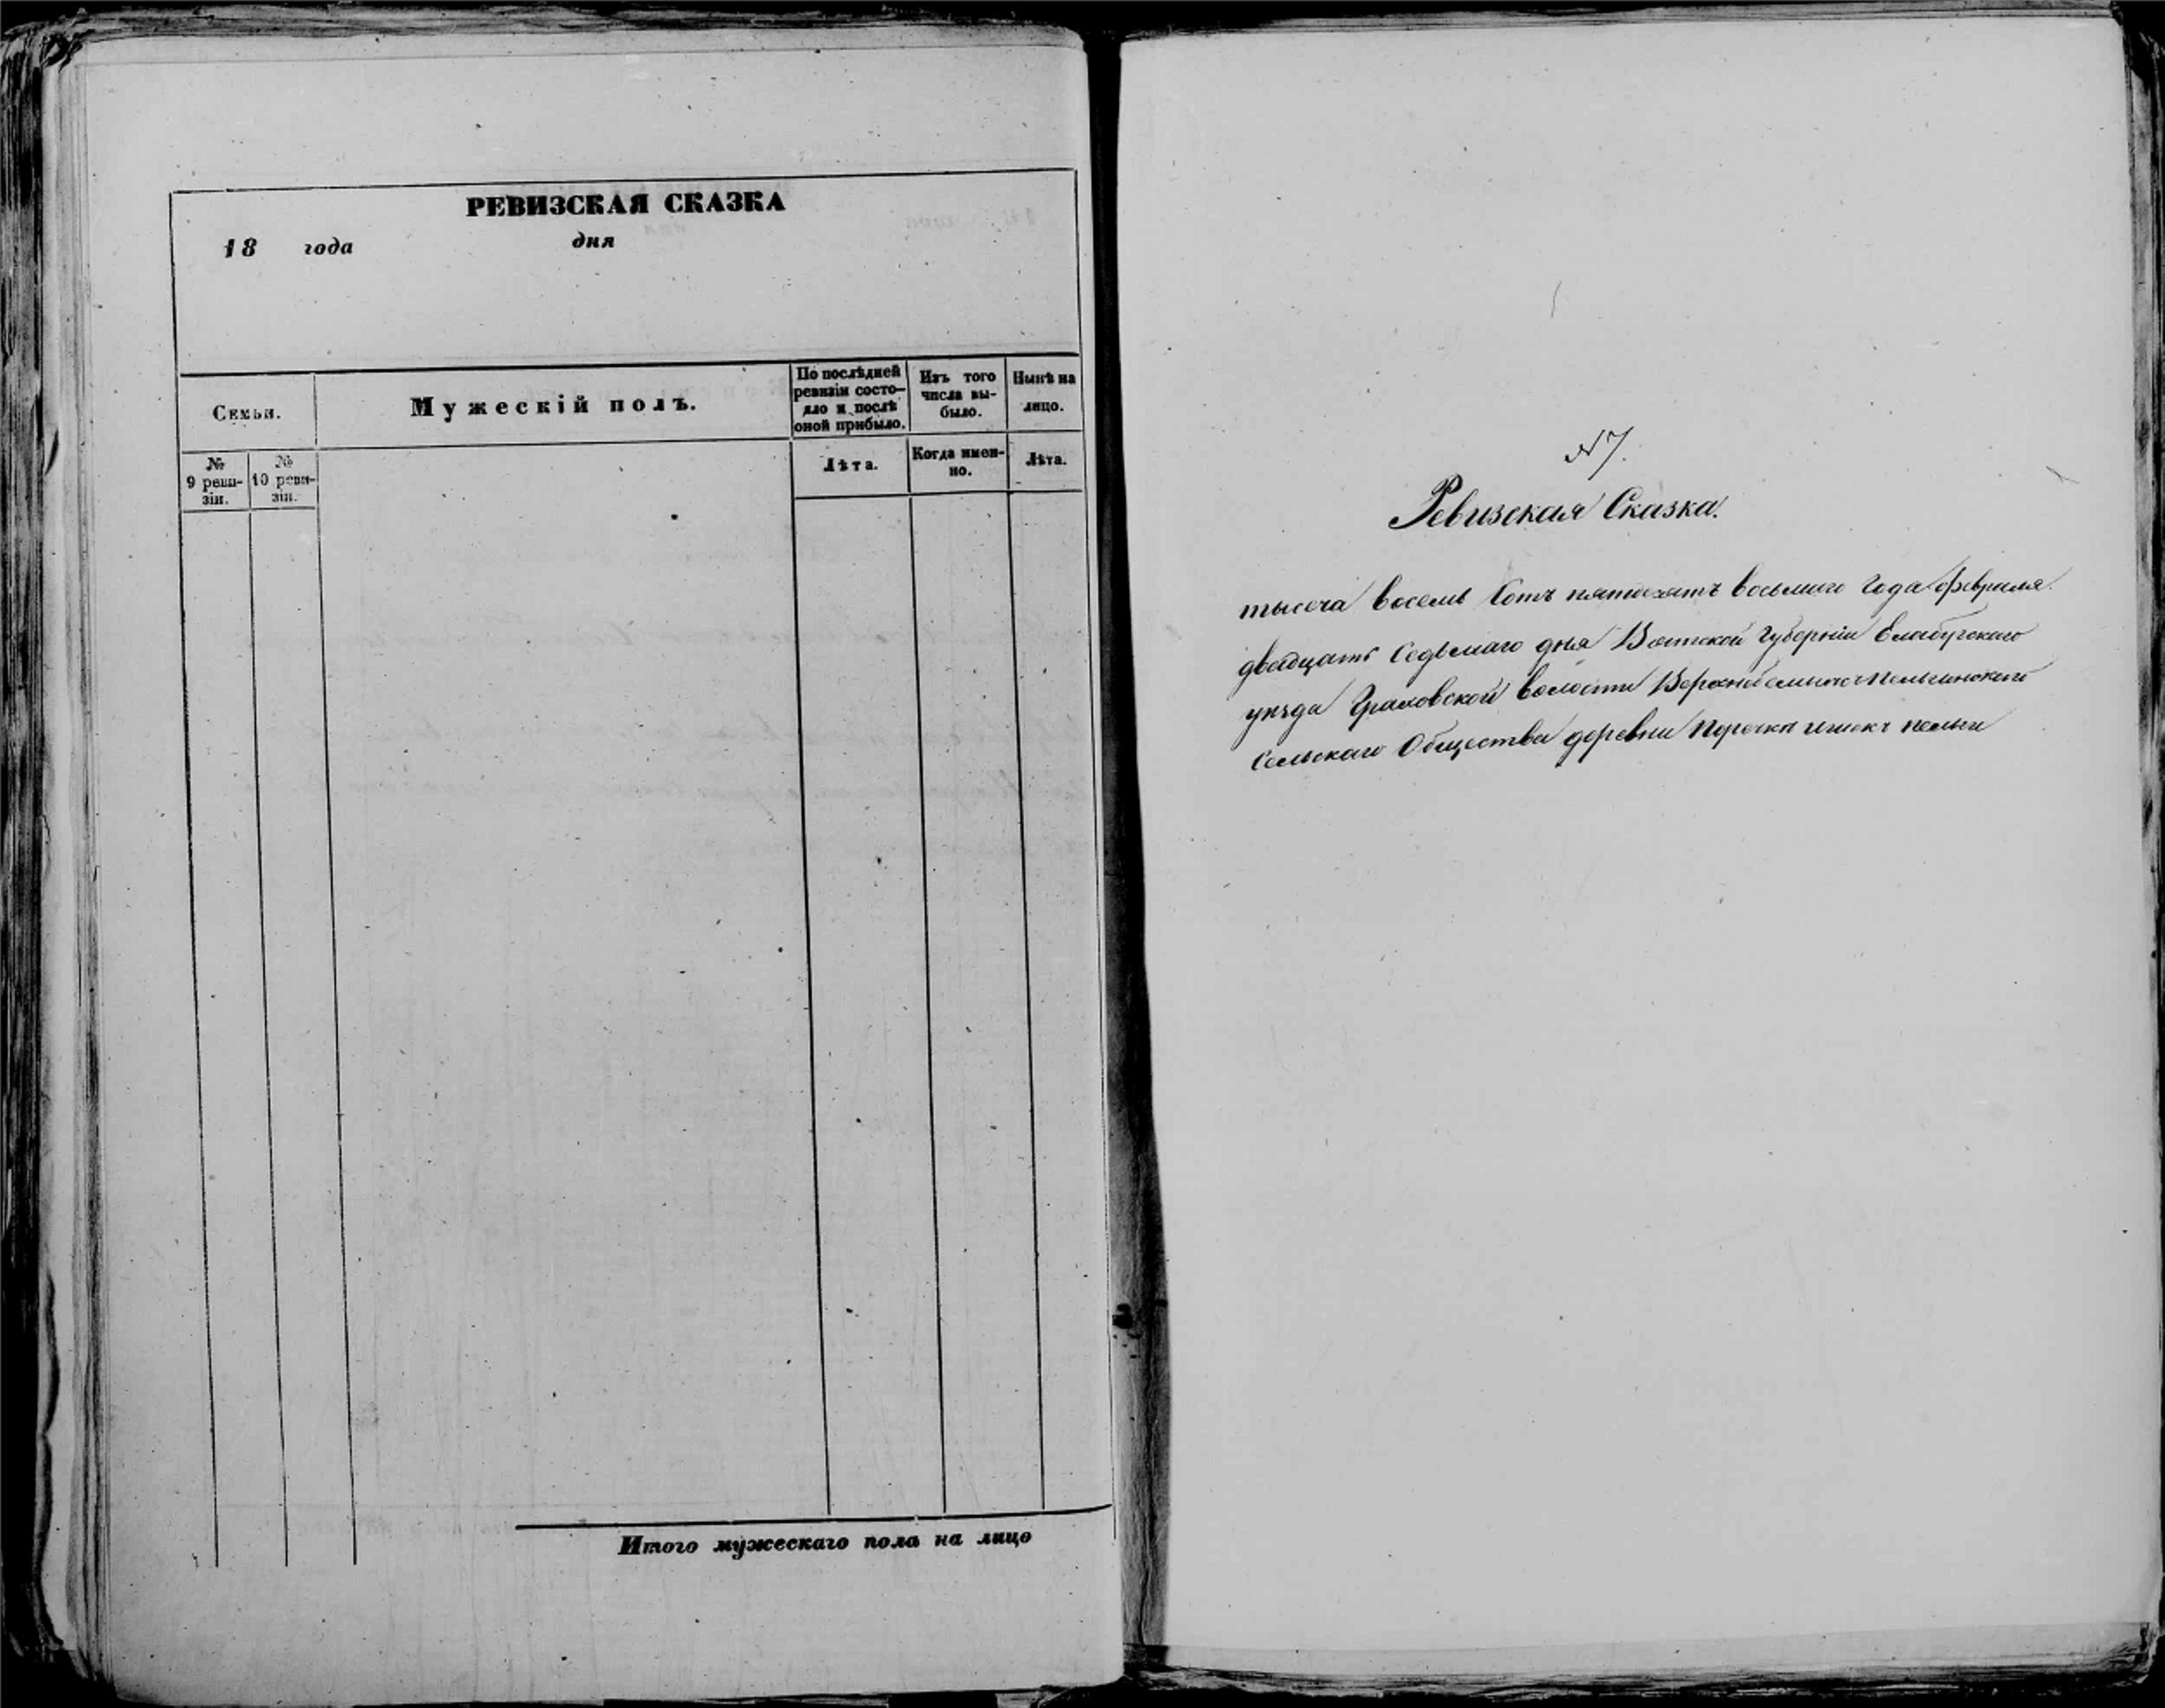 РЕВИЗСКАЯ СКАЗКА
18 года дня
Семьи.
Мужескій полъ.
По послѣдней ревизіи состо-
яло и послѣ оной прибыло.
Изъ того числа вы-
было.
Нынѣ на лицо.
№ 9 реви-
зіи.
№ 10 реви-
зіи.
Лѣта.
Когда имен-
но.
Лѣта.
Итого мужескаго пола на лицо
№ 7.
Ревизская Сказка.
тысеча восемь сотъ пятдесятъ восьмаго года февраля
двадцать седьмаго дня Вятской Губерніи Елабугскаго
уѣзда Граховской волости
Сельскаго Общества деревни пельги